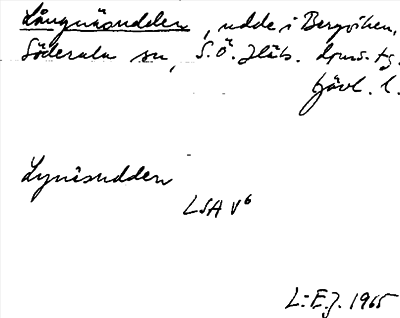 Långnäsudden, udde i Bergviken,
Söderala sn, S.Ö. Häls. doms.tg.
Gävl. l.
Lynäsudden
LSA V6
L:E.J. 1965